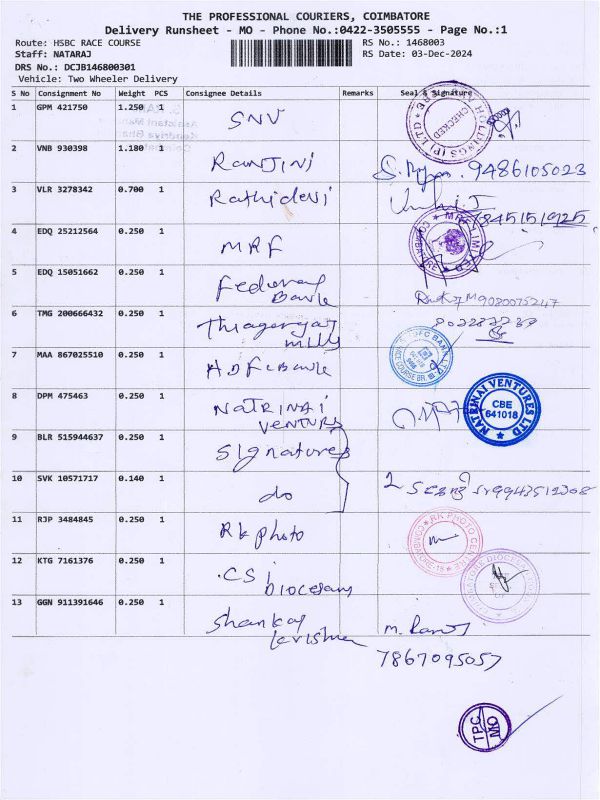 THE PROFESSIONAL COURIERS, COIMBATORE
Delivery Runsheet - MO - Phone No.:0422-3505555 - Page No.:1
Route: HSBC RACE COURSE RS No.: 1468003
Staff: NATARAJ RS Date: 03-Dec-2024
DRS No.: DCJB146800301
Vehicle: Two Wheeler Delivery
S No Consignment No Weight PCS Consignee Details Remarks Seal & Signature
1 GPM 421750 1.250 1 SNV CHECKED
2 VNB 930398 1.180 1 Ranjini 9486105023
3 VLR 3278342 0.700 1 Rathidevi
4 EDQ 25212564 0.250 1 MRF
5 EDQ 15051662 0.250 1 Federal Bank
6 TMG 200666432 0.250 1 Thiagarajar mills
7 MAA 867025510 0.250 1 HDFC Bank
8 DPM 475463 0.250 1 NATRINAI VENTURS NATRINAI VENTURES LTD CBE 641018
9 BLR 515944637 0.250 1 Signatures
10 SVK 10571717 0.140 1 do
11 RJP 3484845 0.250 1 Rk photo RK PHOTO CENTRE COIMBATORE-18
12 KTG 7161376 0.250 1 CSi Diocesan
13 GGN 911391646 0.250 1 Shankar krishna
7867095057
TPC MO